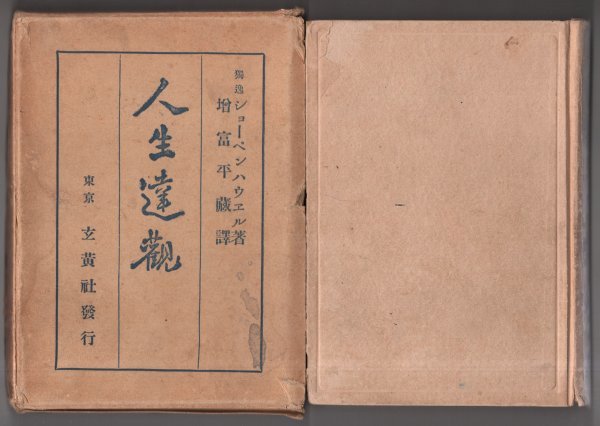 獨逸ショーペンハウヱル著
増富平蔵譯
人生達觀
東京 玄黄社發行